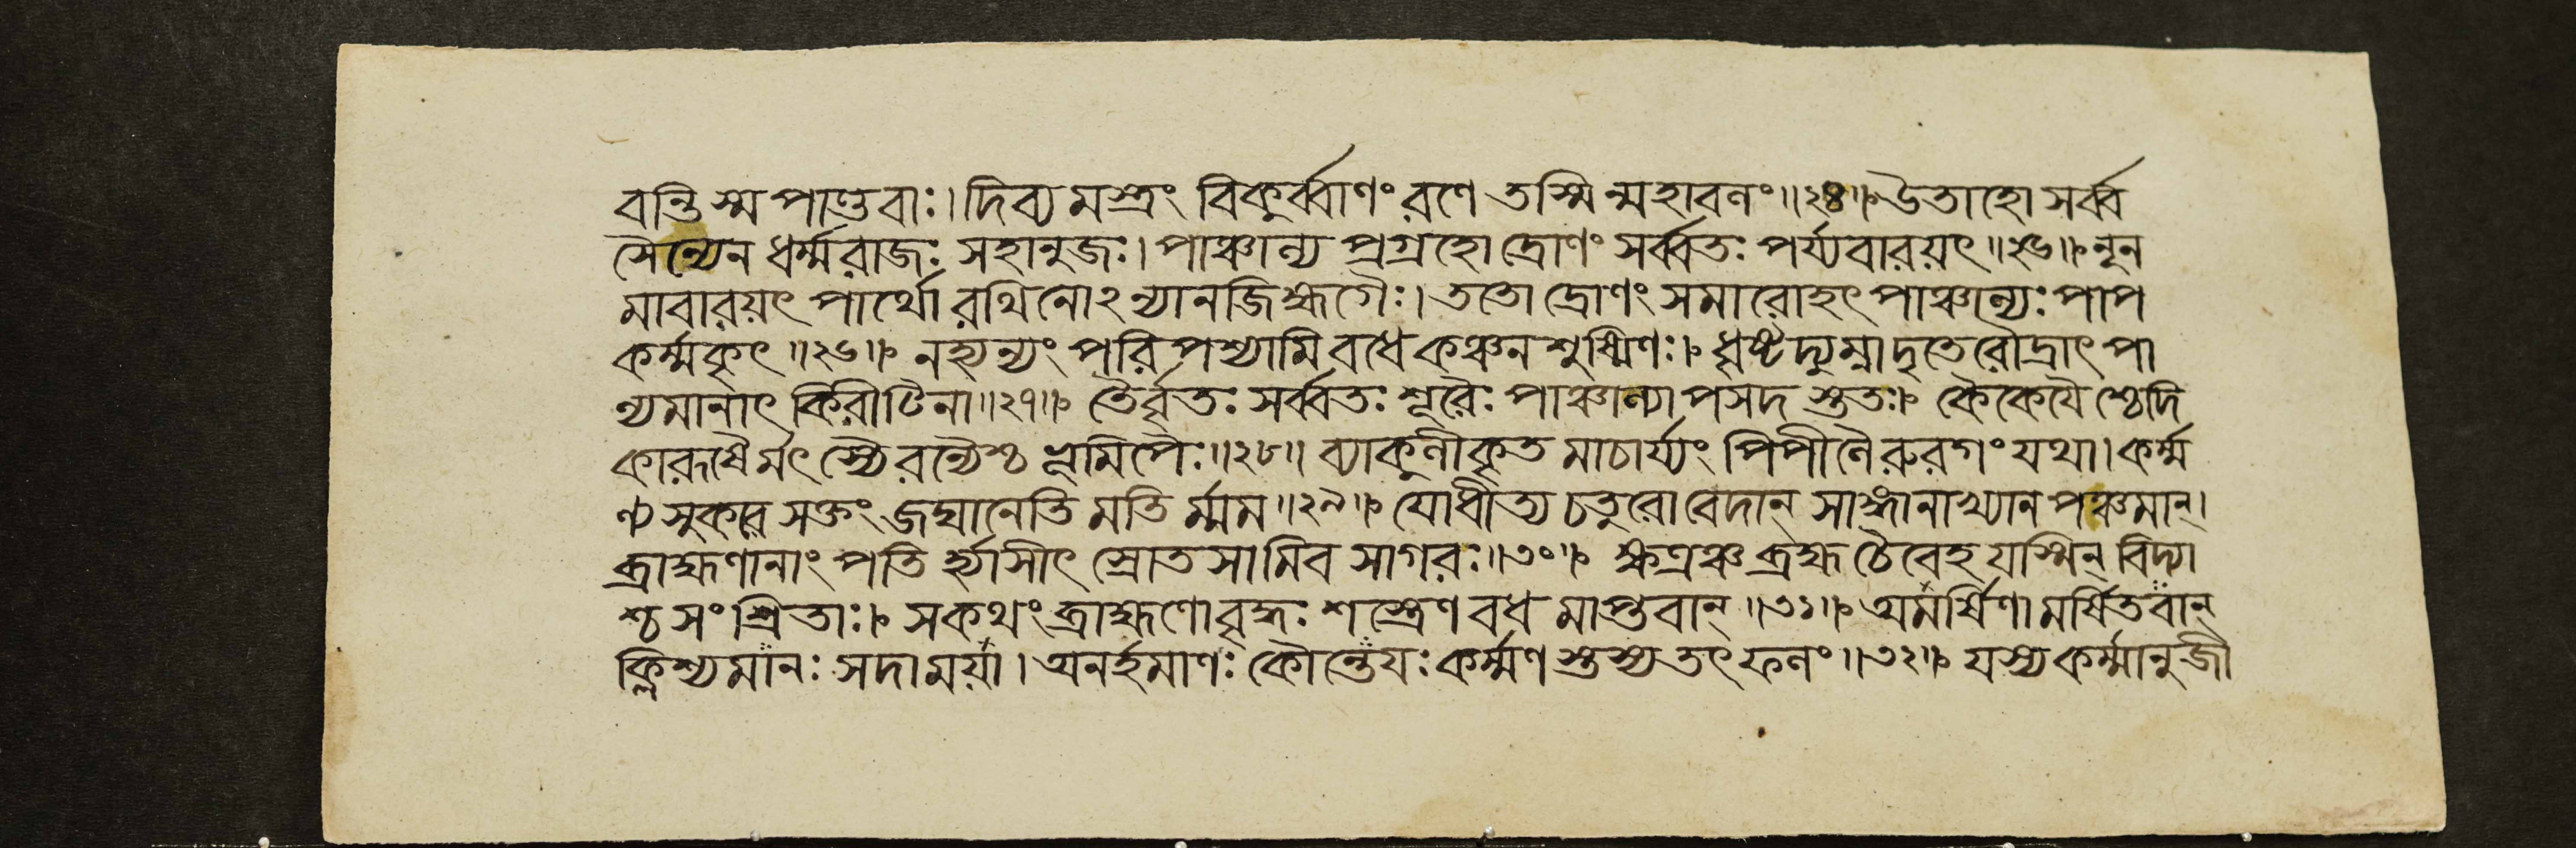 বন্তি স্ম পাণ্ডবাঃ। দিব্যমস্ত্রং বিকুর্ব্বাণং রণে তস্মিন্মহাবলং॥২৪॥ উতাহো সর্ব্ব
সৈন্যেন ধর্ম্মরাজঃ সহানুজঃ। পাঞ্চাল্য প্রগ্রহো দ্রোণং সর্ব্বতঃ পর্য্যবারয়ৎ॥২৫॥ নূন
মাবারয়ৎ পার্থো রথিনোঽন্যানজিহ্মগৈঃ। ততো দ্রোণং সমারোহৎ পাঞ্চাল্যঃ পাপ
কর্ম্মকৃৎ॥২৬॥ নহ্যন্যং পরিপশ্যামি বধে কঞ্চন শুষ্মিণঃ। ধৃষ্টদ্যুম্নাদৃতে রৌদ্রাৎ পা
ল্যমানাৎ কিরীটিনা॥২৭॥ তৈর্বৃতঃ সর্ব্বতঃ শূরৈঃ পাঞ্চাল্যাপসদস্ততঃ। কৈকেযৈশ্চেদি
কারূষৈর্মৎস্যৈরন্যৈশ্চ ভূমিপৈঃ॥২৮॥ ব্যাকুলীকৃতমাচার্য্যং পিপীলৈরুরগং যথা। কর্ম্ম
ণ্যসুকরে সক্তং জঘানেতি মতির্ম্মম॥২৯॥ যোধীত্য চতুরো বেদান্ সাঙ্গানাখ্যানপঞ্চমান্।
ব্রাহ্মণানাং পতির্হ্যাসীৎ স্রোতসামিব সাগরঃ॥৩০॥ ক্ষত্রঞ্চ ব্রহ্ম চৈবেহ যস্মিন্ বিদ্যা
শ্চ সংশ্রিতাঃ। স কথং ব্রাহ্মণো বৃদ্ধঃ শস্ত্রেণ বধমাপ্তবান্॥৩১॥ অমর্ষিণা মর্ষিতবান্
ক্লিশ্যমানঃ সদা ময়া। অনর্হমাণঃ কৌন্তেয়ঃ কর্ম্মণস্তস্য তৎ ফলং॥৩২॥ যস্য কর্ম্মানুজী